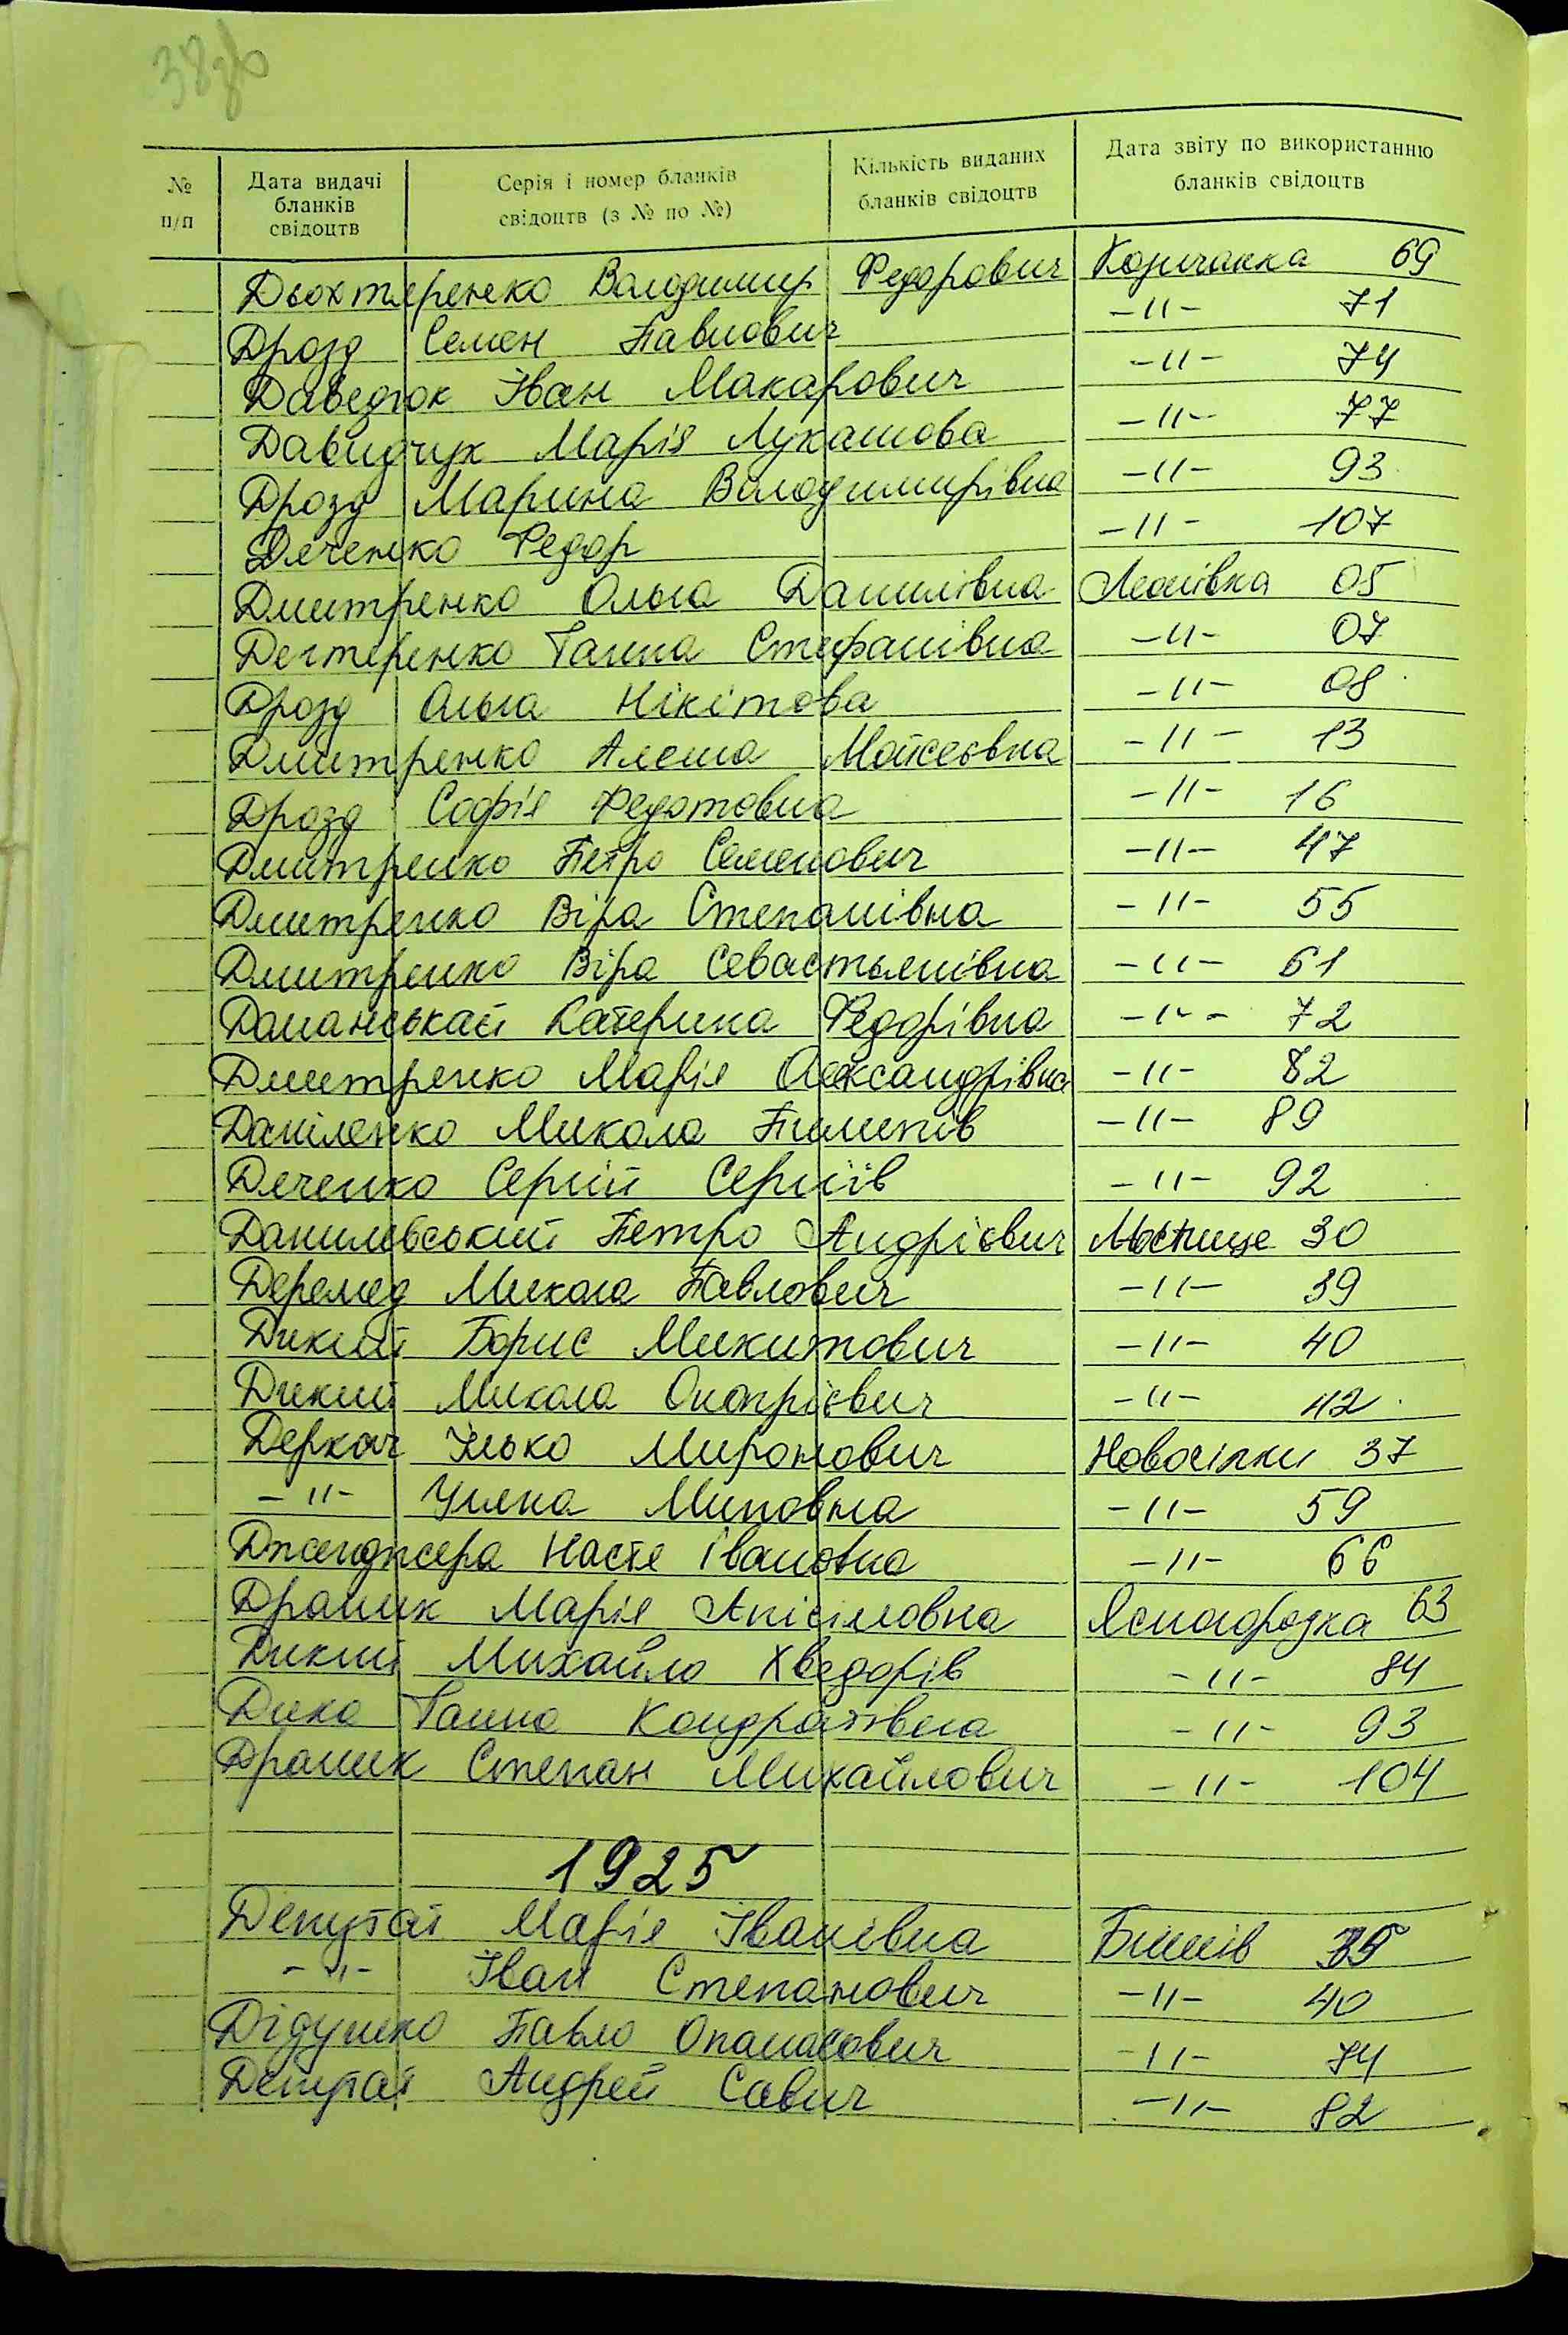 38зв
№ п/п
Дата видачі бланків свідоцтв
Серія і номер бланків свідоцтв (з № по №)
Кількість виданих бланків свідоцтв
Дата звіту по використанню бланків свідоцтв
Дьохтяренко Володимир Федорович Козичанка 69
Дрозд Семен Павлович -"- 71
Даведюк Іван Макарович -"- 74
Давидчук Марія Лукашова -"- 77
Дрозд Марина Володимирівна -"- 93
Дяченко Федор -"- 107
Дмитренко Ольга Данилівна Леонівка 05
Дегтеренко Ганна Стефанівна -"- 07
Дрозд Ольга Нікітова -"- 08
Дмитренко Алена Мойсеєвна -"- 13
Дрозд Софія Федотовна -"- 16
Дмитренко Петро Семенович -"- 47
Дмитренко Віра Степанівна -"- 55
Дмитренко Віра Севастьянівна -"- 61
Даманськай Катерина Федорівна -"- 72
Дмитренко Марія Олександрівна -"- 82
Даніленко Микола Пилипів -"- 89
Дяченко Сергій Сергіїв -"- 92
Данилевський Петро Андрієвич Мостище 30
Деремед Микола Павлович -"- 39
Дикий Борис Микитович -"- 40
Дикий Микола Онопрієвич -"- 42
Деркач Ілько Миронович Новосілки 37
-"- Уляна Миновна -"- 59
Дженджера Настя Івановна -"- 66
Драник Марія Анісімовна Ясногородка 63
Дикий Михайло Хведорів -"- 84
Дика Ганна Кондратівна -"- 93
Драник Степан Михайлович -"- 104
1925
Депутат Марія Іванівна Бишів 35
-"- Іван Степанович -"- 40
Дідушко Павло Опанасович -"- 74
Депутат Андрей Савич -"- 82